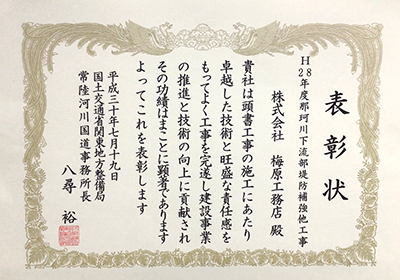 表彰状
H28年度那珂川下流部堤防補強他工事
株式会社 梅原工務店 殿
貴社は頭書工事の施工にあたり
卓越した技術と旺盛な責任感を
もってよく工事を完遂し建設事業
の推進と技術の向上に貢献され
その功績はまことに顕著であります
よってこれを表彰します
平成三十年七月十九日
国土交通省関東地方整備局
常陸河川国道事務所長
八尋 裕